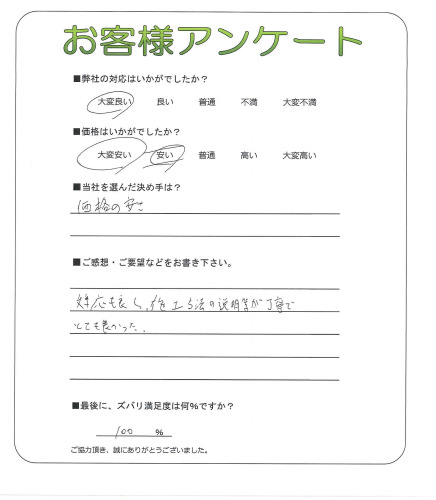 お客様アンケート
■弊社の対応はいかがでしたか？
大変良い 良い 普通 不満 大変不満
■価格はいかがでしたか？
大変安い 安い 普通 高い 大変高い
■当社を選んだ決め手は？
価格の安さ
■ご感想・ご要望などをお書き下さい。
対応も良く、施工方法の説明等が丁寧で
とても良かった。
■最後に、ズバリ満足度は何%ですか？
100 %
ご協力頂き、誠にありがとうございました。